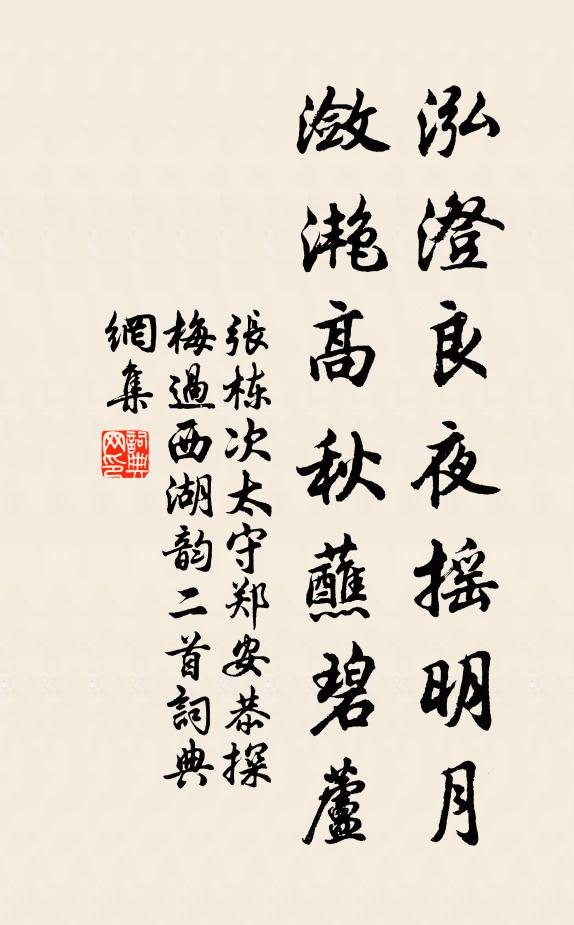 泓澄良夜摇明月
潋滟高秋蘸碧蘆
張栋次太守郑安恭探
梅過西湖韵二首詞典
網集
詞典网印